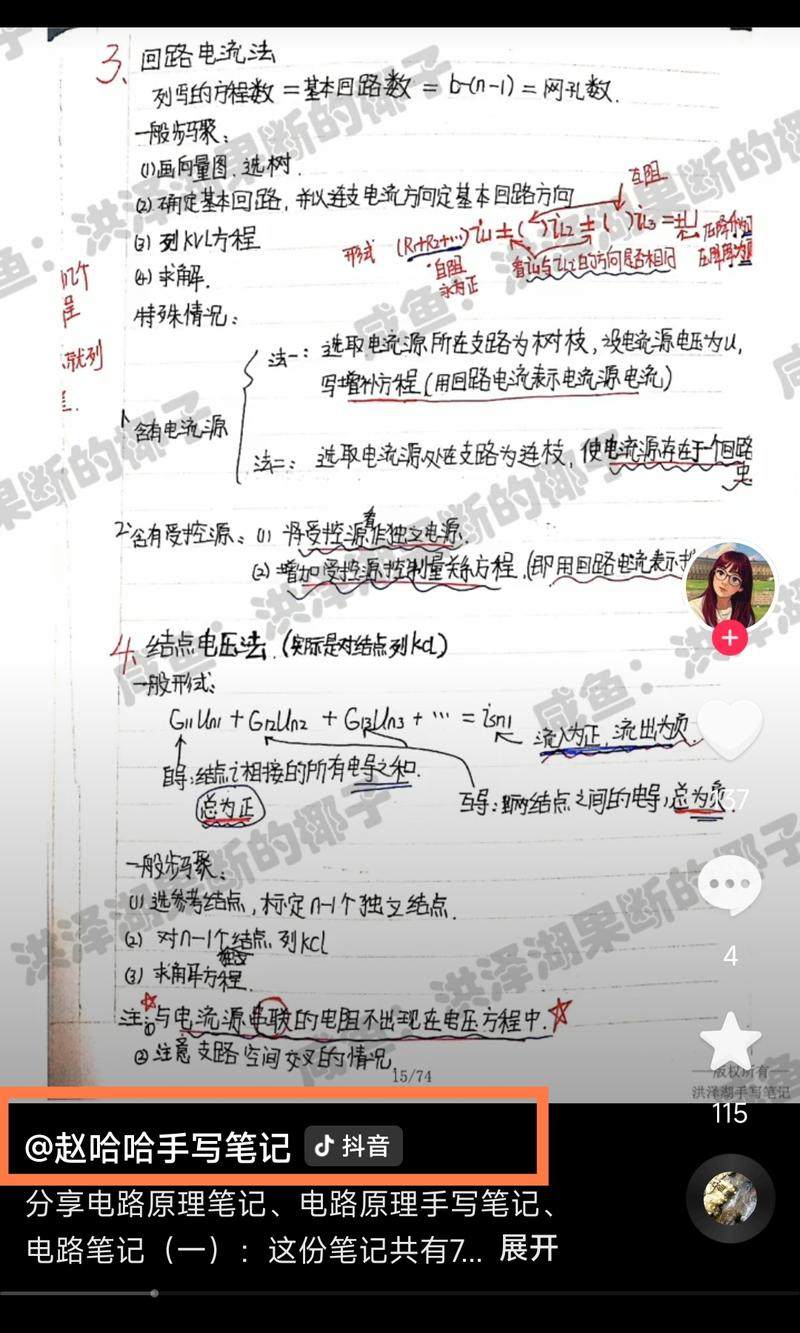 3、回路电流法
列写的方程数 = 基本回路数 = b-(n-1) = 网孔数.
一般步骤:
(1)画向量图.选树.
(2)确定基本回路,并以连支电流方向定基本回路方向
互阻
(3)列KVL方程
形式 (R1+R2+…)iL1±( )iL2±( )iL3=±U
自阻
永为正
看iL1与iL2的方向是否相同
(4)求解.
几个
程
就列
特殊情况:
1°含有电流源
法一:选取电流源所在支路为树枝,设电流源电压为U,
写增补方程(用回路电流表示电流源电流)
法二:选取电流源所在支路为连枝,使电流源存在于一个回路
中
2°含有受控源:(1)将受控源看作独立电源.
(2)增加受控源控制量关系方程.(即用回路电流表示
4.结点电压法.(实际是对结点列kcl)
一般形式:
G11Un1+G12Un2+G13Un3+…=isn1
流入为正,流出为负
自导:结点i相接的所有电导之和.
总为正
互导:两结点之间的电导,总为负.
一般步骤:
(1)选参考结点,标定n-1个独立结点.
(2)对n-1个结点列kcl
(3)求解方程.
注:①与电流源串联的电阻不出现在电压方程中.
②注意支路空间交叉的情况
15/74
版权所有
洪泽湖手写笔记
咸鱼:洪泽湖果断的椰子
137
4
115
@赵哈哈手写笔记 抖音
分享电路原理笔记、电路原理手写笔记、
电路笔记(一):这份笔记共有7... 展开